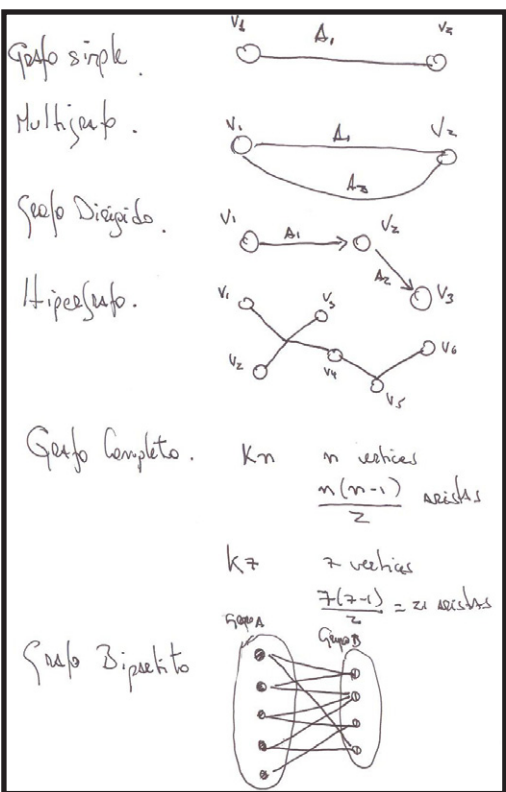 Grafo simple.
V1 A1 V2
Multigrafo.
V1 A1 V2
A2
Grafo Dirigido.
V1 A1 V2
A2
V3
Hipergrafo.
V1 V3
V2 V4 V6
V5
Grafo Completo. Kn n vertices
n(n-1)/2 aristas
K7 7 vertices
7(7-1)/2 = 21 aristas
Grupo A Grupo B
Grafo Bipartito